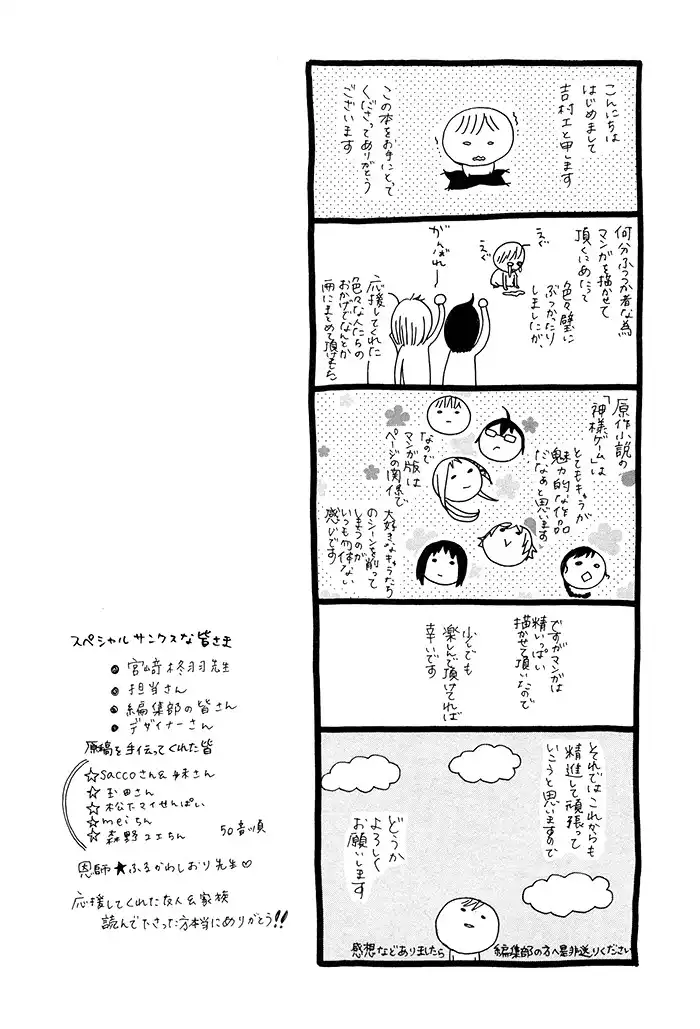 こんにちは
はじめまして
吉村エと申します
この本をお手にとって
くださってありがとう
ございます
何分ふつつか者な為
マンガを描かせて
頂くにあたって
色々壁に
ぶつかったり
しましたが、
えぐ
えぐ
がんばれー
応援してくれた
色々な人たちの
おかげでなんとか
冊にまとめて頂けました
原作小説の
「神様ゲーム」は
とてもキャラが
魅力的な作品
だなぁと思います
なので
マンガ版は
ページの関係で
大好きなキャラたち
のシーンを削って
しまうのが
いつも勿体ない
感じです
ですがマンガは
精いっぱい
描かせて頂いたので
少しでも
楽しんで頂ければ
幸いです
それではこれからも
精進して頑張って
いこうと思いますので
どうか
よろしく
お願いします
感想などありましたら 編集部の方へ是非送りください
スペシャルサンクスな皆さま
● 宮﨑柊羽先生
● 担当さん
● 編集部の皆さん
● デザイナーさん
原稿を手伝ってくれた皆
☆saccoさん&妹さん
☆玉田さん
☆松下マイせんぱい
☆meiちん
☆森野ユエちん 50音順
恩師★ふるかわしおり先生♡
応援してくれた友人&家族
読んで下さった方本当にありがとう!!